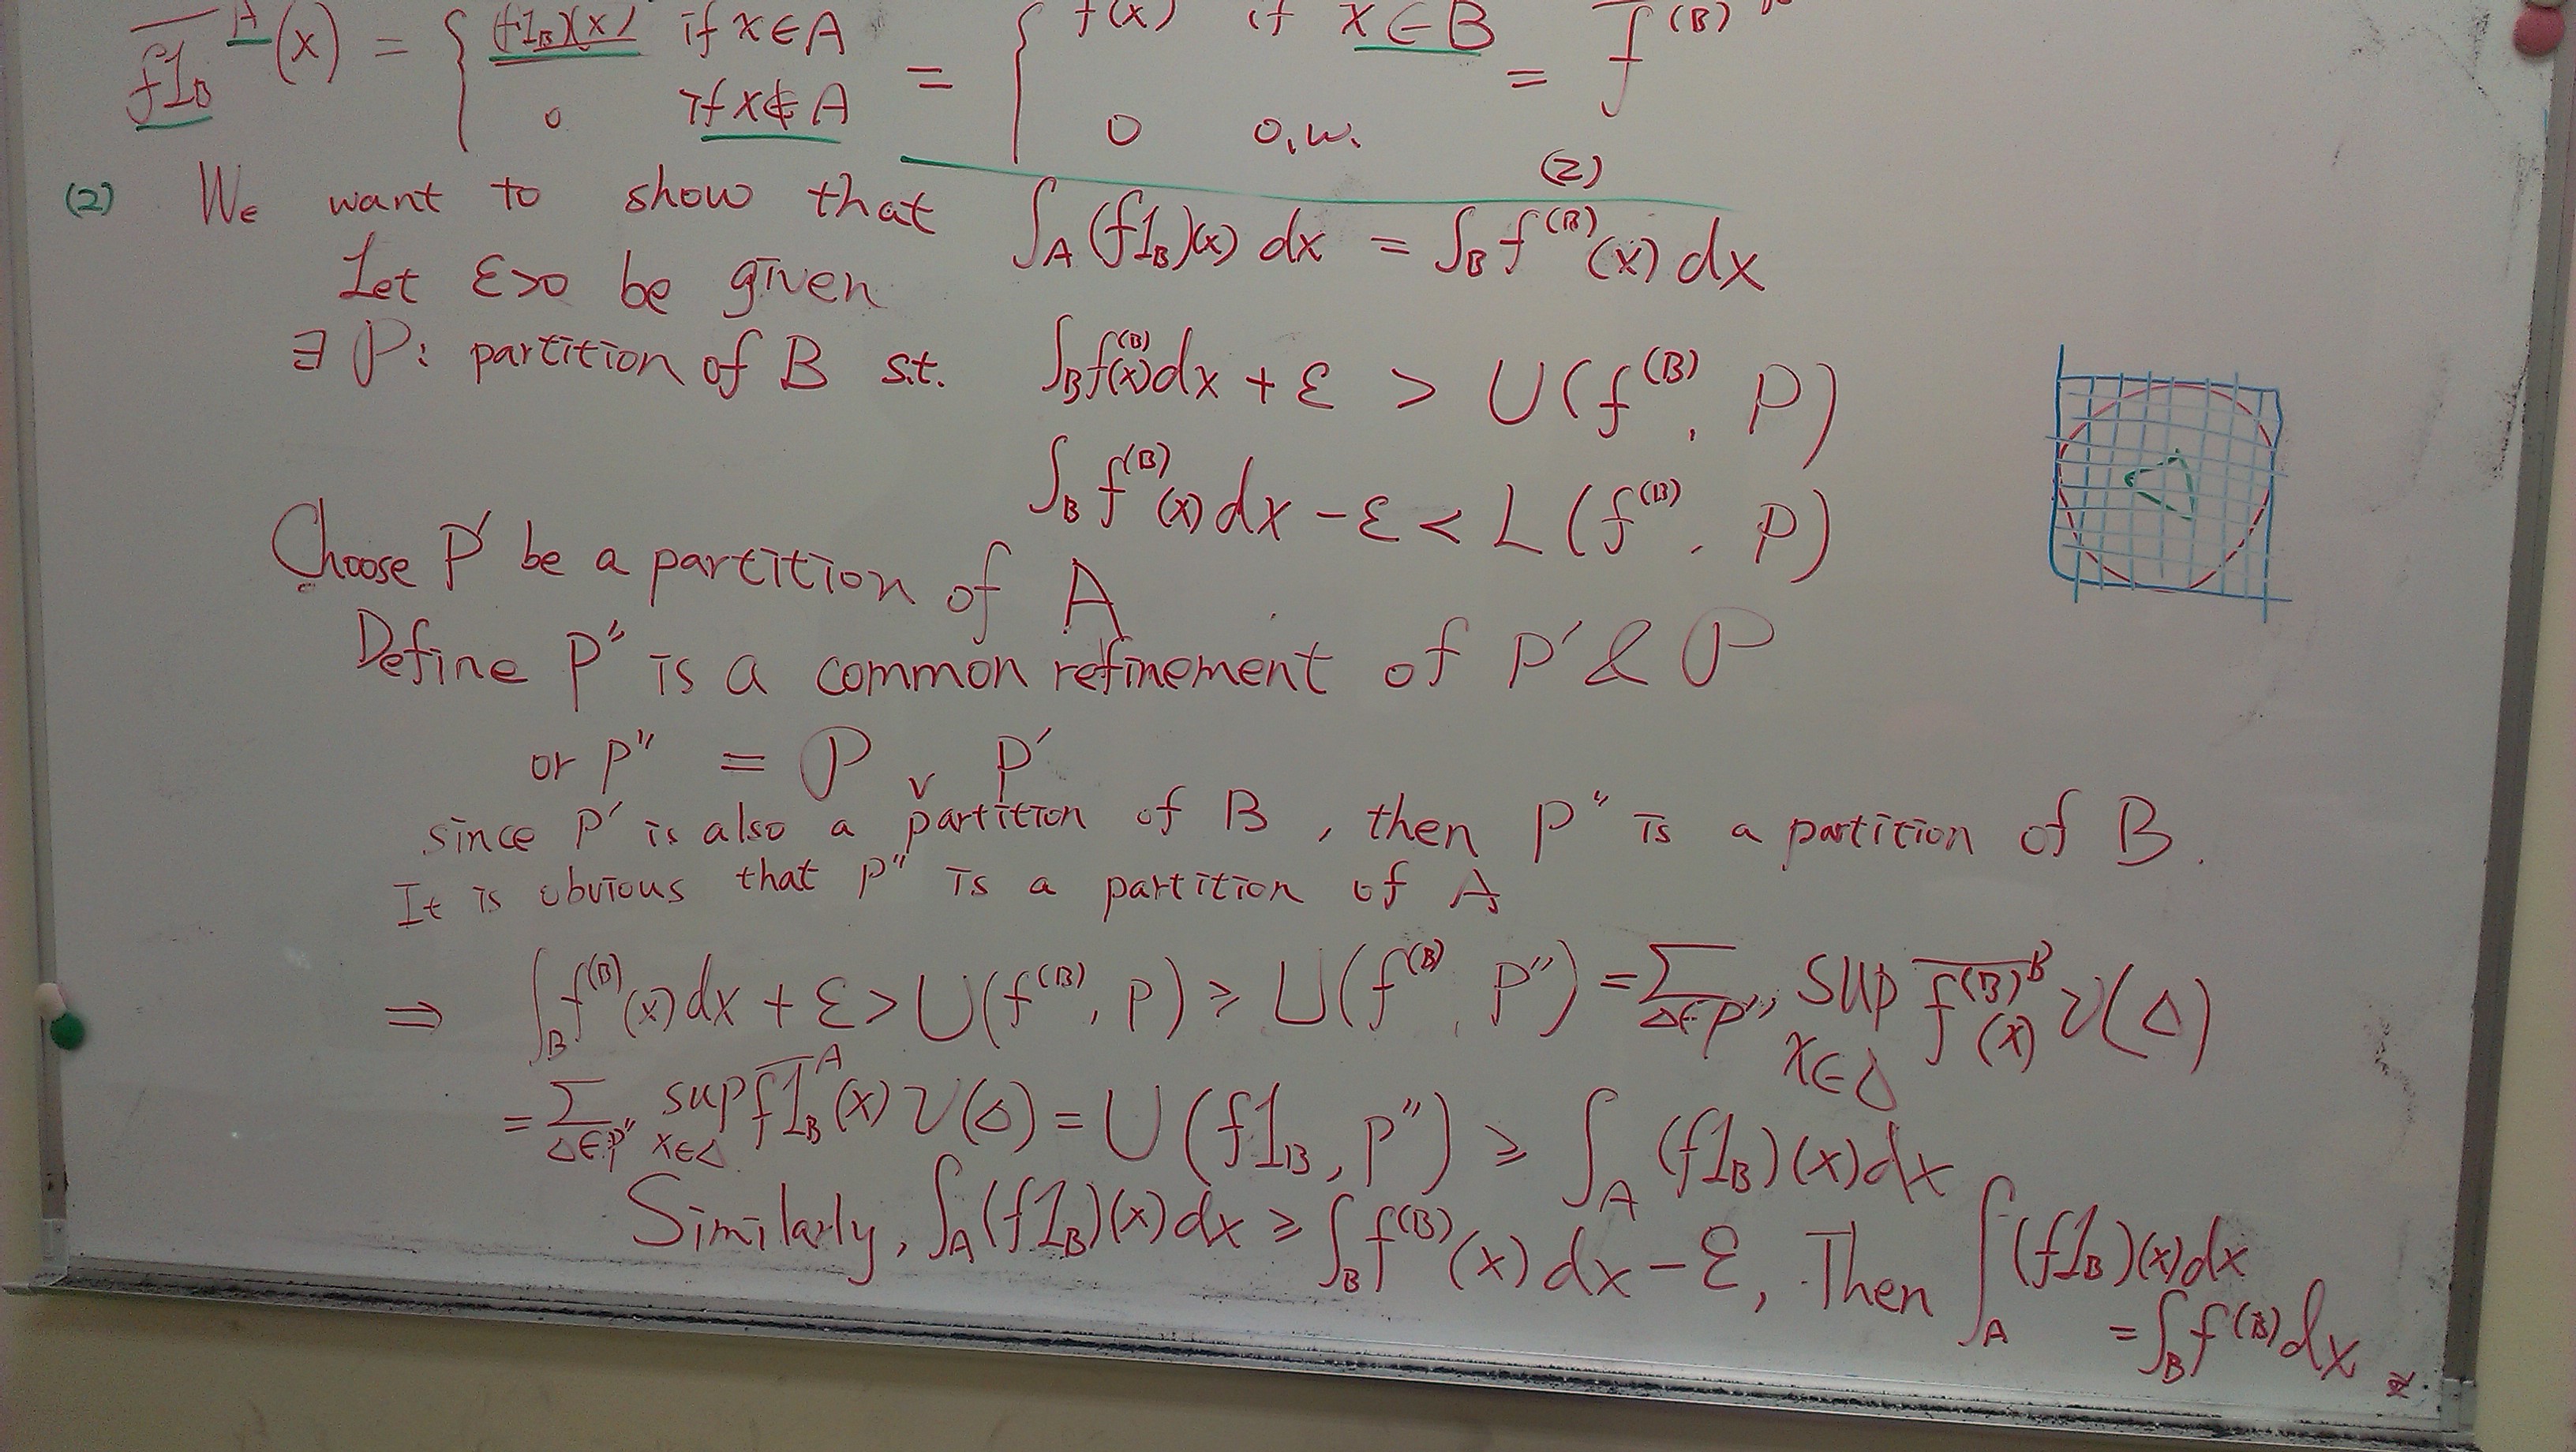 $\overline{f1_B}^A(x) = \begin{cases} (f1_B)(x) & \text{if } x \in A \\ 0 & \text{if } x \notin A \end{cases} = \begin{cases} f(x) & \text{if } x \in B \\ 0 & \text{o.w.} \end{cases} = \overline{f^{(B)}}$
(2) We want to show that $\int_A (f1_B)(x) dx \overset{(2)}{=} \int_B f^{(B)}(x) dx$
Let $\varepsilon > 0$ be given
∃ P: partition of B s.t. $\int_B f^{(B)}(x) dx + \varepsilon > U(f^{(B)}, P)$
$\int_B f^{(B)}(x) dx - \varepsilon < L(f^{(B)}, P)$
Choose P′ be a partition of A
Define P″ is a common refinement of P′ & P
or P″ = P ∨ P′
since P′ is also a partition of B, then P″ is a partition of B.
It is obvious that P″ is a partition of A
$\Rightarrow \int_B f^{(B)}(x) dx + \varepsilon > U(f^{(B)}, P) \geq U(f^{(B)}, P'') = \sum_{\Delta \in P''} \sup_{x \in \Delta} \overline{f^{(B)}}^B(x) \nu(\Delta)$
$= \sum_{\Delta \in P''} \sup_{x \in \Delta} \overline{f1_B}^A(x) \nu(\Delta) = U(f1_B, P'') \geq \int_A (f1_B)(x) dx$
Similarly, $\int_A (f1_B)(x) dx \geq \int_B f^{(B)}(x) dx - \varepsilon$, Then $\int_A (f1_B)(x) dx$
$= \int_B f^{(B)} dx$